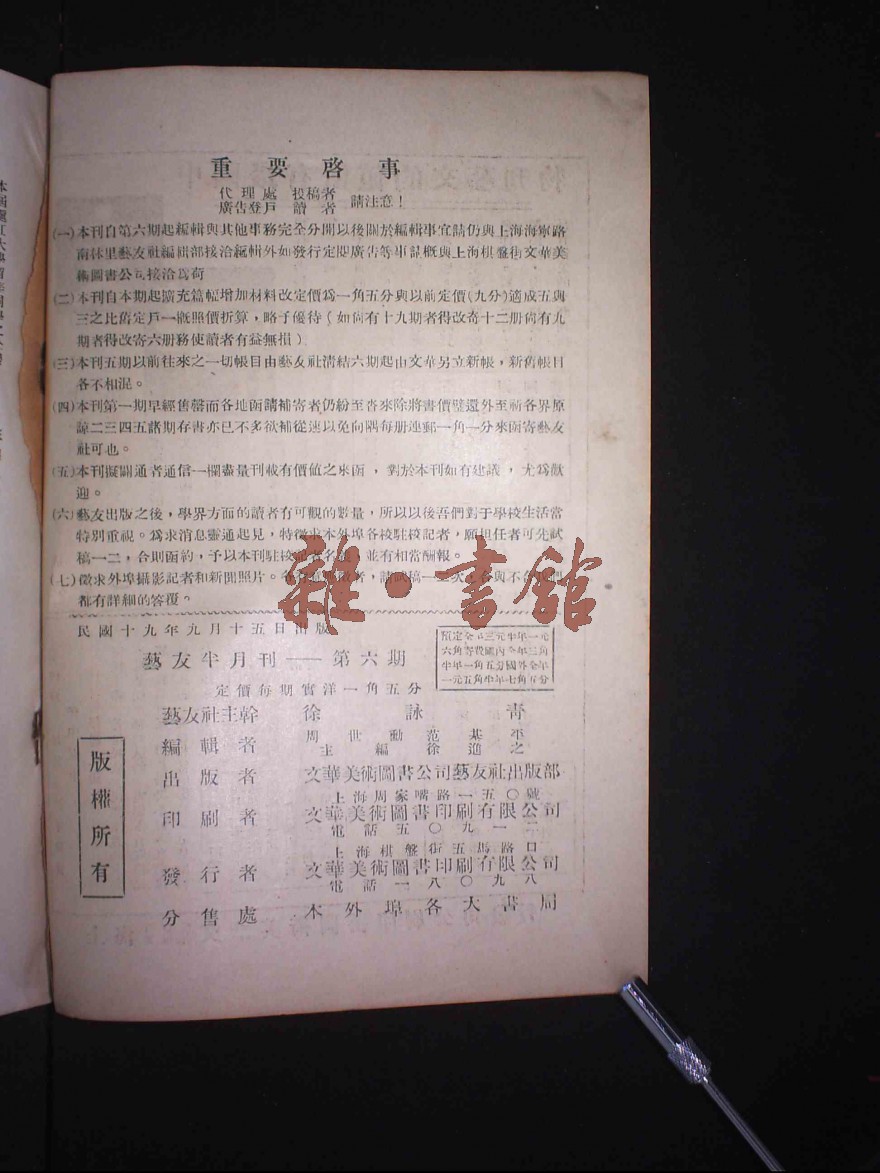 重要啓事
代理處 投稿者
廣告登戶 讀者
請注意！
(一)本刊自第六期起編輯與其他事務完全分開以後關於編輯事宜請仍與上海海寧路
南林里藝友社編輯部接洽編輯外如發行定期廣告等事請概與上海棋盤街文華美
術圖書公司接洽爲荷
(二)本刊自本期起擴充篇幅增加材料改定價爲一角五分與以前定價(九分)適成五與
三之比舊定戶一概照價折算，略予優待（如尙有十九期者得改寄十二册尙有九
期者得改寄六册務使讀者有益無損）
(三)本刊五期以前往來之一切帳目由藝友社清結六期起由文華另立新帳，新舊帳目
各不相混。
(四)本刊第一期早經售罄而各地函請補寄者仍紛至沓來除將書價璧還外至祈各界原
諒二三四五諸期存書亦已不多欲補從速以免向隅每册連郵一角一分來函寄藝友
社可也。
(五)本刊擬闢通者通信一欄盡量刊載有價値之來函，對於本刊如有建議，尤爲歡
迎。
(六)藝友出版之後，學界方面的讀者有可觀的數量，所以以後吾們對于學校生活當
特別重視。爲求消息靈通起見，特徵求本外埠各校駐校記者，願担任者可先試
稿一二，合則函約，予以本刊駐校記者名義，並有相當酬報。
(七)徵求外埠攝影記者和新聞照片。
請試稿一
都有詳細的答覆。
雜·書館
民國十九年九月十五日出版
藝友半月刊——第六期
定價每期實洋一角五分
預定全年三元半年一元
六角寄費國內全年三角
半年一角五分國外全年
一元五角半年七角五分
藝友社主幹 徐詠青
編輯者 周世勳 范基平
主編 徐進之
出版者 文華美術圖書公司藝友社出版部
上海周家嘴路一五〇號
印刷者 文華美術圖書印刷有限公司
電話五〇九一二
上海棋盤街五馬路口
發行者 文華美術圖書印刷有限公司
電話一八〇九八
分售處 本外埠各大書局
版權所有